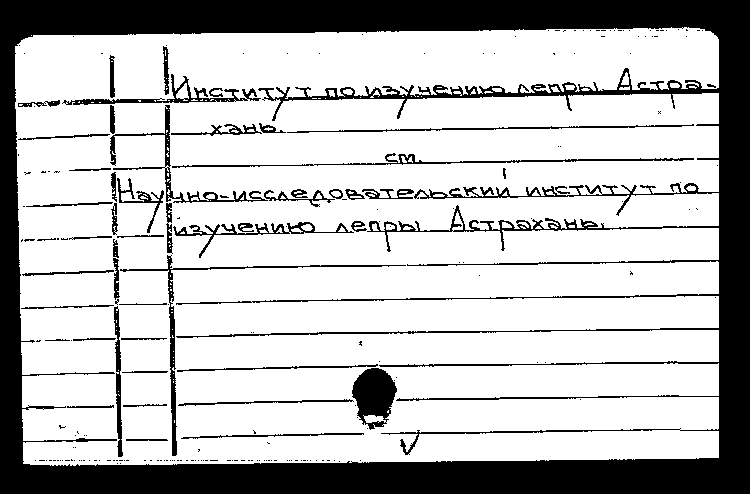 Институт по изучению лепры. Астра-
хань.
см.
Научно-исследовательский институт по
изучению лепры. Астрахань.
V